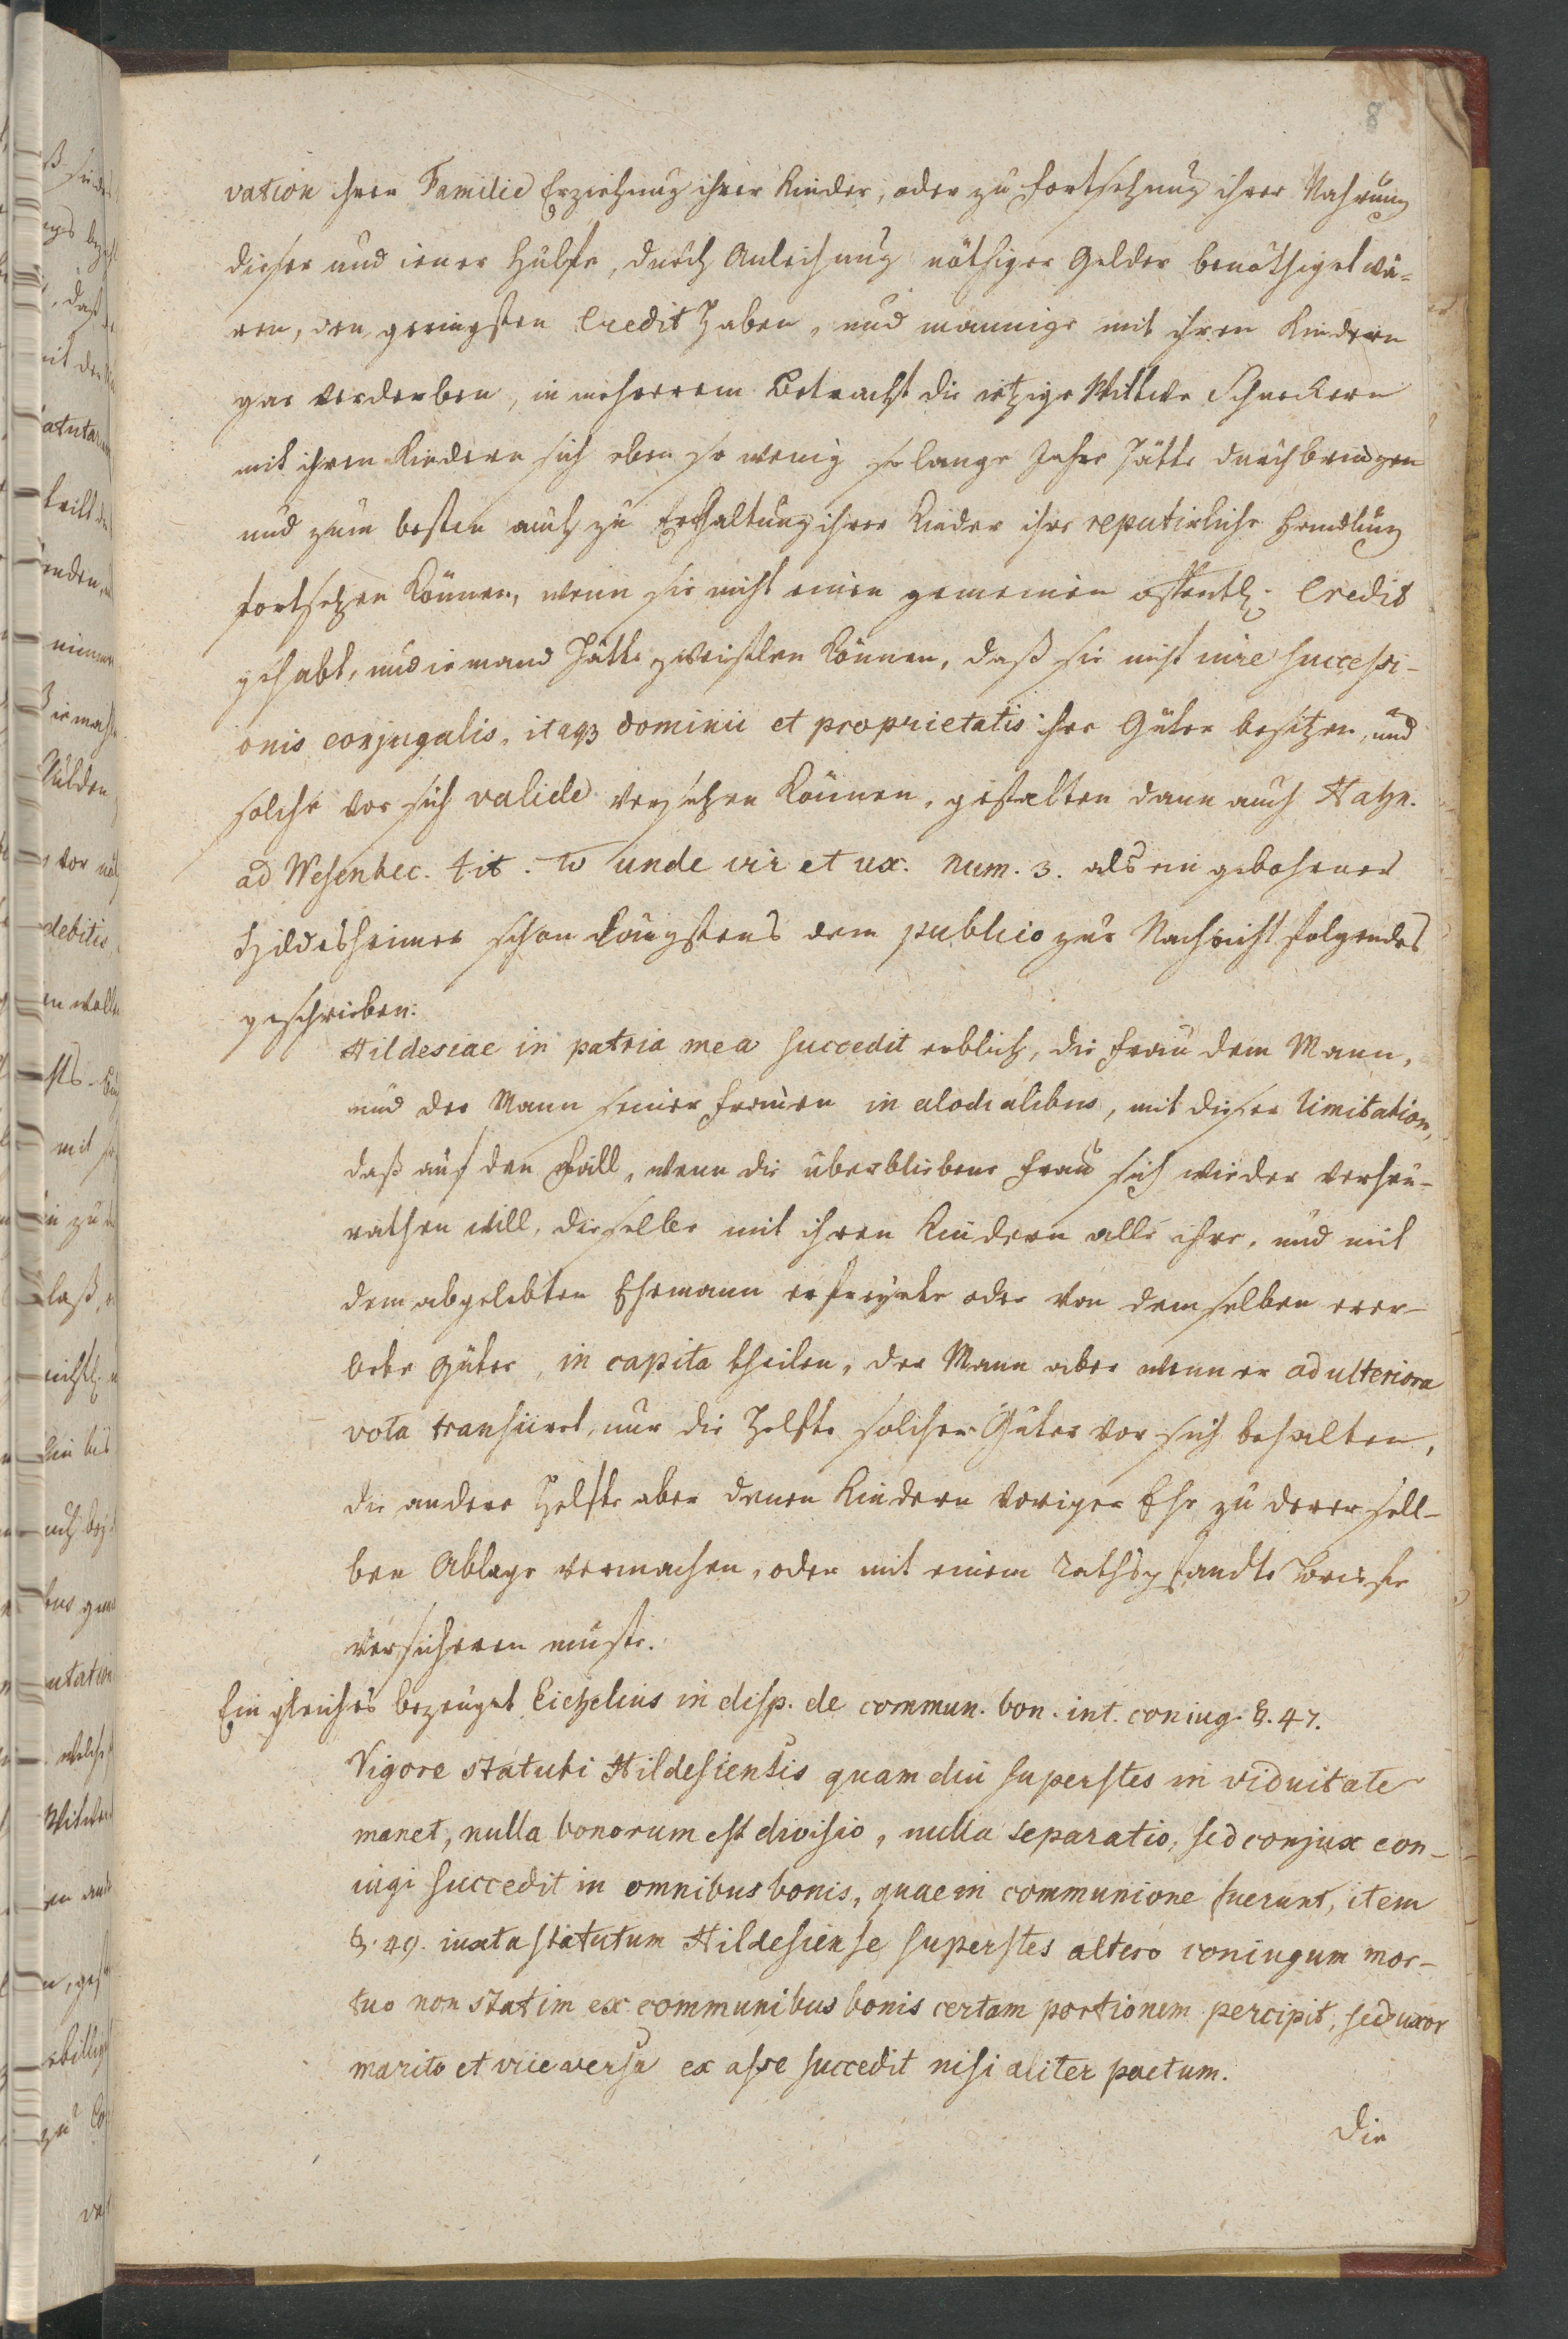 8
vation ihrer Familie Erziehung ihrer Kinder, oder zu fortsetzung ihrer Nahrung
dieser und iener Hülffe, durch Anleihung nöthiger Gelder benöthiget wä-
ren, den geringsten Credit haben, und mannige mit ihren Kindern
gar verderben, in mehrerem Betracht die ietzige Wittwe Schneckern
mit ihren Kindern sich eben so wenig so lange Jahre hätte durchbringen
und zum besten auch zu Erhaltung ihrer Kinder ihre reputirliche Handlung
fortsetzen können, wenn sie nicht einen gemeinen offentl. Credit
gehabt, und iemand hätte zweifelen können, daß sie nicht iure successi-
onis conjugalis, itaq3 dominii et proprietatis ihre Güter besitzen, und
solche vor sich valide versetzen können, gestalten dann auch Hahn.
ad Wesenbec. tit. unde vir et ux. num. 3. als ein gebohrner
Hildesheimer schon längstens dem publico zur Nachricht folgendes
geschrieben:
Hildesiae in patria mea succedit erblich, die frau dem Mann,
und der Mann seiner frauen in alodialibus, mit dieser limitation,
daß auf den fall, wenn die überbliebene frau sich wieder verheu-
rathen will, dieselbe mit ihren Kindern alle ihre, und mit
dem abgelebten Ehemann erfreyete oder von demselben erer-
bete Güter, in capita theilen, der Mann aber wenn er ad ulteriora
vota transiiret, nur die Helfte solcher Güter vor sich behalten,
die andere Helfte aber denen Kindern voriger Ehe zu derersell-
ben Ablage vermachen, oder mit einem rathspfandts
versicheren müste.
Ein gleiches bezeuget Eichelius in disp. de commun. bon. int. coniug. §. 47.
Vigore statuti Hildesiensis quam diu superstes in viduitate
manet, nulla bonorum est divisio, nulla separatio, sed conjux con-
iugi succedit in omnibus bonis, quae in communione fuerunt, item
§. 49. iuxta statutum Hildesiense superstes altero coniugum mor-
tuo non statim ex communibus bonis certam portionem percipit, sed uxor
marito et vice versa ex asse succedit nisi aliter pactum.
Die